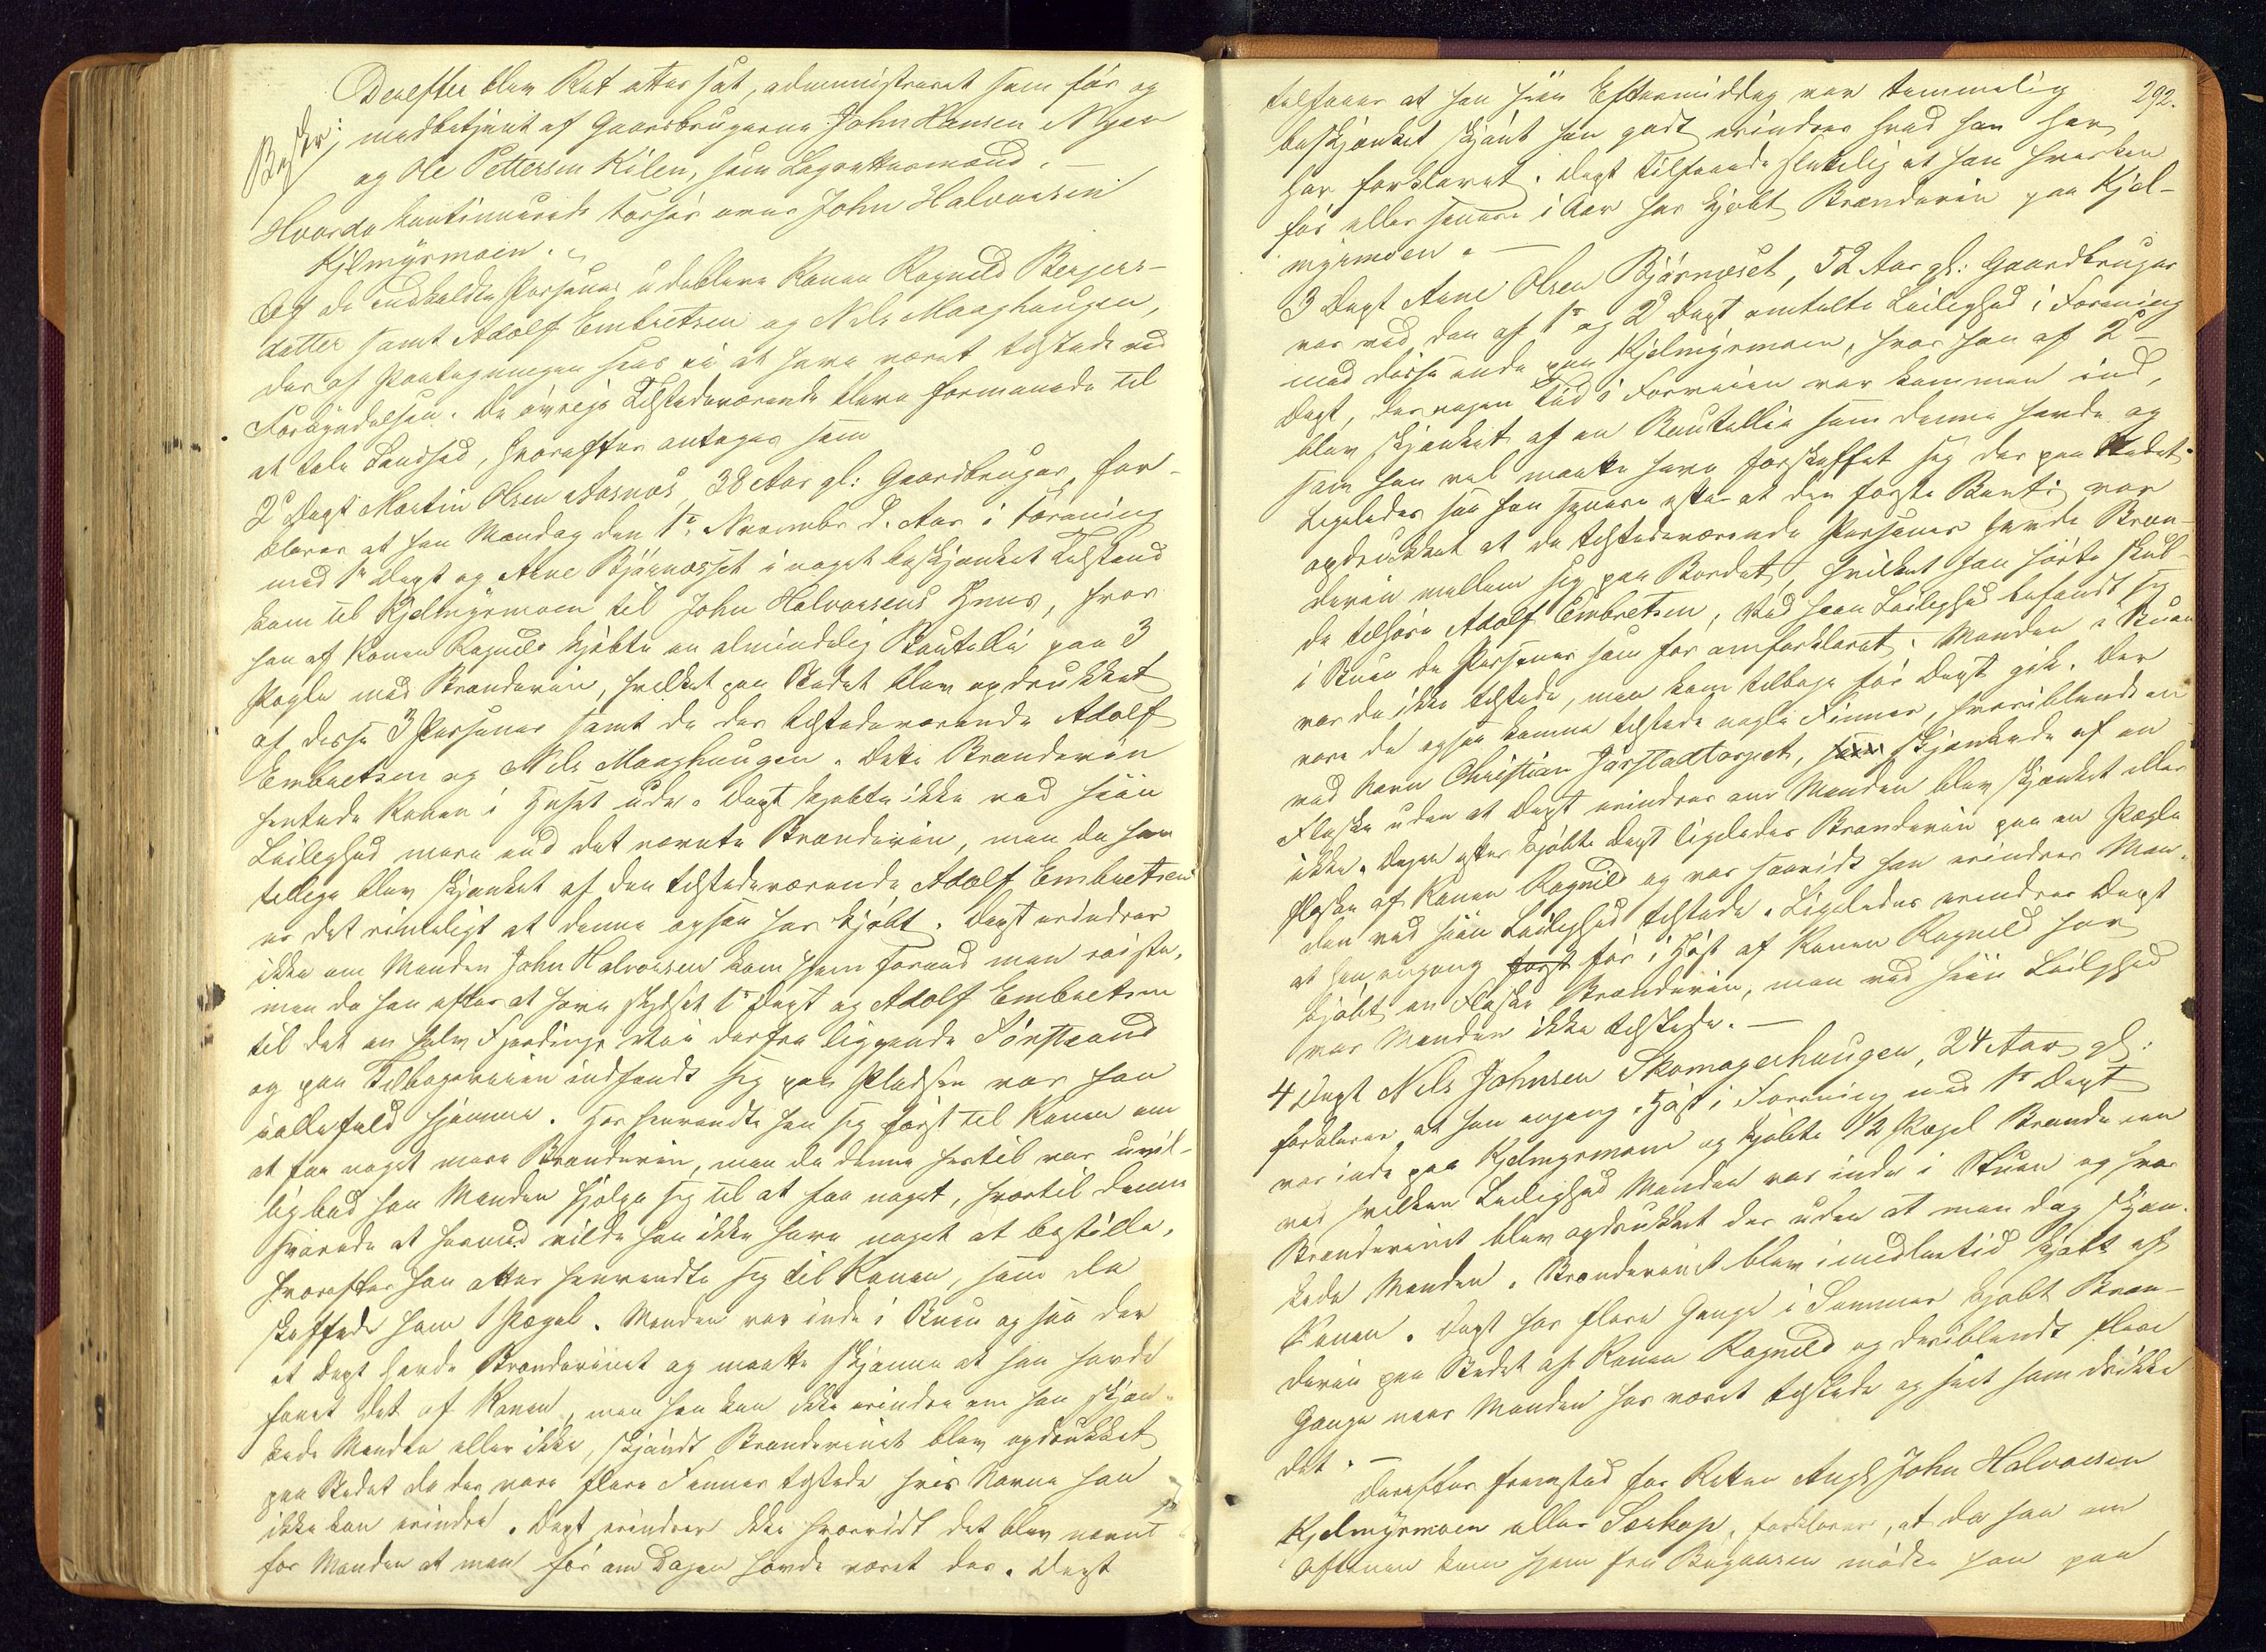 Derefter blev Ret atter sat, administreret som før og
Beskr: medbetjent af Gaardbrugerne John Hansen Myren
og Ole Pettersen Kilen, som Lagrettesmænd. —
Hvorda kontinueredes Forhør over John Halvorsen
Kjelmyrmoen.
Af de indkaldte Personer udebleve Konen Ragnild Bergers-
datter samt Adolf Embretsen og Nels Moaghaugen,
der af Paategningen sees ei at have været tilstede ved
Forkyndelsen. De øvrige Tilstedeværende bleve formanede til
at tale Sandhed, hvorefter antoges som
2d Dept Martin Olsen Aasnæs, 38 Aar gl: Gaardbruger, for-
klarer at han Mandag den 1te Novembr d. Aar i Forening
med 1te Dept og Arne Bjørnæsset i noget beskjænket Tilstand
kom til Kjelmyrmoen til John Halvorsens Huus, hvor
han af Konen Ragnild kjøbte en almindelig Boutellie paa 3
Pægle med Brændeviin, hvilket paa Stedet blev opdrukket
af disse 3 Personer samt de der tilstedeværende Adolf
Embretsen og Nels Moaghaugen. Dette Brændeviin
hentede Konen i Huset ude. Dept kjøbte ikke ved hiin
Leilighed mere end det nævnte Brændeviin, men da han
tillige blev skjænket af den tilstedeværende Adolf Embretsen
er det rimeligt at denne ogsaa har kjøbt. Dept erindrer
ikke om Manden John Halvorsen kom hjem forend man reiste,
men da han efter at have skydset 1te Dept og Adolf Embretsen
til det en halv Fjerdings Vei derfra liggende Sørstrand
og paa Tilbageveien indfandt sig paa Pladsen var han
ialfald hjemme. Her henvendte han sig først til Konen om
at faae noget mere Brændeviin, men da denne hertil var uvil-
lig bad han Manden hjælpe sig til at faa noget, hvortil denne
svarede at hermed vilde han ikke have noget at bestille,
hvorefter han atter henvendte sig til Konen, som da
skaffede ham 1 Pægel. Manden var inde i Stuen og saa der
at Dept havde Brændevinet og maatte skjønne at han havde
faaet det af Konen, men han kan ikke erindre om han skjæn-
kede Manden eller ikke, skjøndt Brændevinet blev opdrukket
paa Stedet da der vare flere Finner tilstede hvis Navne han
ikke kan erindre. Dept erindrer ikke hvorvidt det blev nævnt
for Manden at man før om Dagen havde været der. Dept
292.
tilføier at han hiin Eftermiddag var temmelig
beskjænket skjønt han godt erindrer hvad han her
har forklaret. Dept tilføiede sluttelig at han hverken
før eller senere i Aar har kjøbt Brændeviin paa Kjel-
myrmoen. —
3 Dept Arne Olsen Bjørnæset, 52 Aar gl: Gaardbruger
var ved den af 1te og 2d Dept omtalte Leilighed i Forening
med disse inde paa Kjelmyrmoen, hvor han af 2d
Dept, der nogen Tid i Forveien var kommen ind,
blev skjænket af en Boutellie som denne havde og
som han vel maatte have forskaffet sig der paa Stedet.
Ligeledes saa han senere efter at den første Bout: var
opdrukket at de tilstedeværende Personer havde Bræn-
deviin mellem sig paa Bordet, hvilket han hørte skul-
de tilhøre Adolf Embretsen. Ved hiin Leilighed befandt sig
i Stuen de Personer som før omforklaret. Manden i Stuen
var da ikke tilstede, men kom tilbage før Dept gik. Der
vare da ogsaa komne tilstede nogle Finner, hvoriblandt en
ved Navn Christian Jarstadtorpet, skjænkede af en
Flaske uden at Dept erindrer om Manden blev skjænket eller
ikke. Dagen efter kjøbte Dept ligeledes Brændeviin paa en Pægle
flaske af Konen Ragnild og var saavidt han erindrer Man-
den ved hiin Leilighed tilstede. Ligeledes erindrer Dept
at han engang før i Høst af Konen Ragnild har
kjøbt en Flaske Brændeviin, men ved hiin Leilighed
var Manden ikke tilstede. —
4 Dept Nils Johnsen Skomagerhaugen, 24 Aar gl:
forklarer, at han engang i Høst i Forening med 1te Dept
var inde paa Kjelmyrmoen og kjøbte 1/2 Pægel Brændeviin
ved hvilken Leilighed Manden var inde i Stuen og hvor
Brændevinet blev opdrukket der uden at man dog skjæn-
kede Manden. Brændevinet blev imidlertid kjøbt af
Konen. Dept har flere Gange i Sommer kjøbt Bræn-
deviin paa Stedet af Konen Ragnild og deriblandt flere
Gange naar Manden har været tilstede og seet ham drikke
det. —
Derefter fremstod for Retten Angl John Halvorsen
Kjelmyrmoen eller Sorkop, forklarer, at da han om
Aftenen kom hjem fra Bugaasen mødte han paa